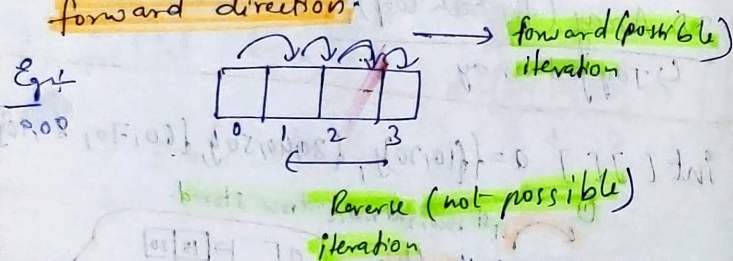 forward direction.
forward (possible)
iteration
Eg:-
0 1 2 3
Reverse (not possible)
iteration